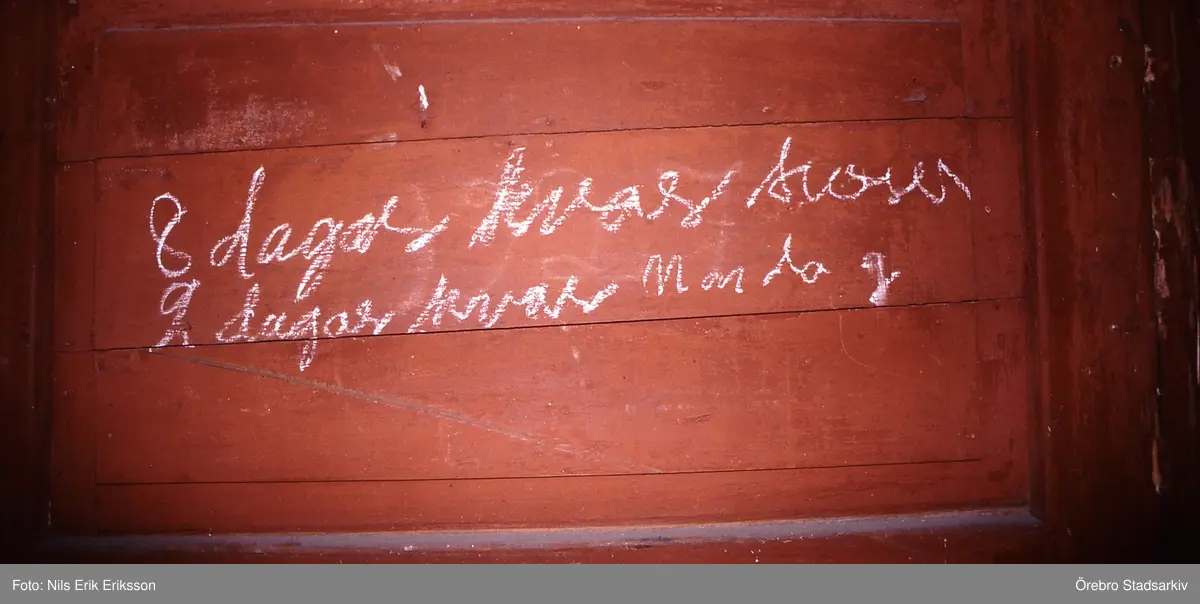 8 dagar kvar
9 dagar kvar Mondag
Foto: Nils Erik Eriksson
Örebro Stadsarkiv